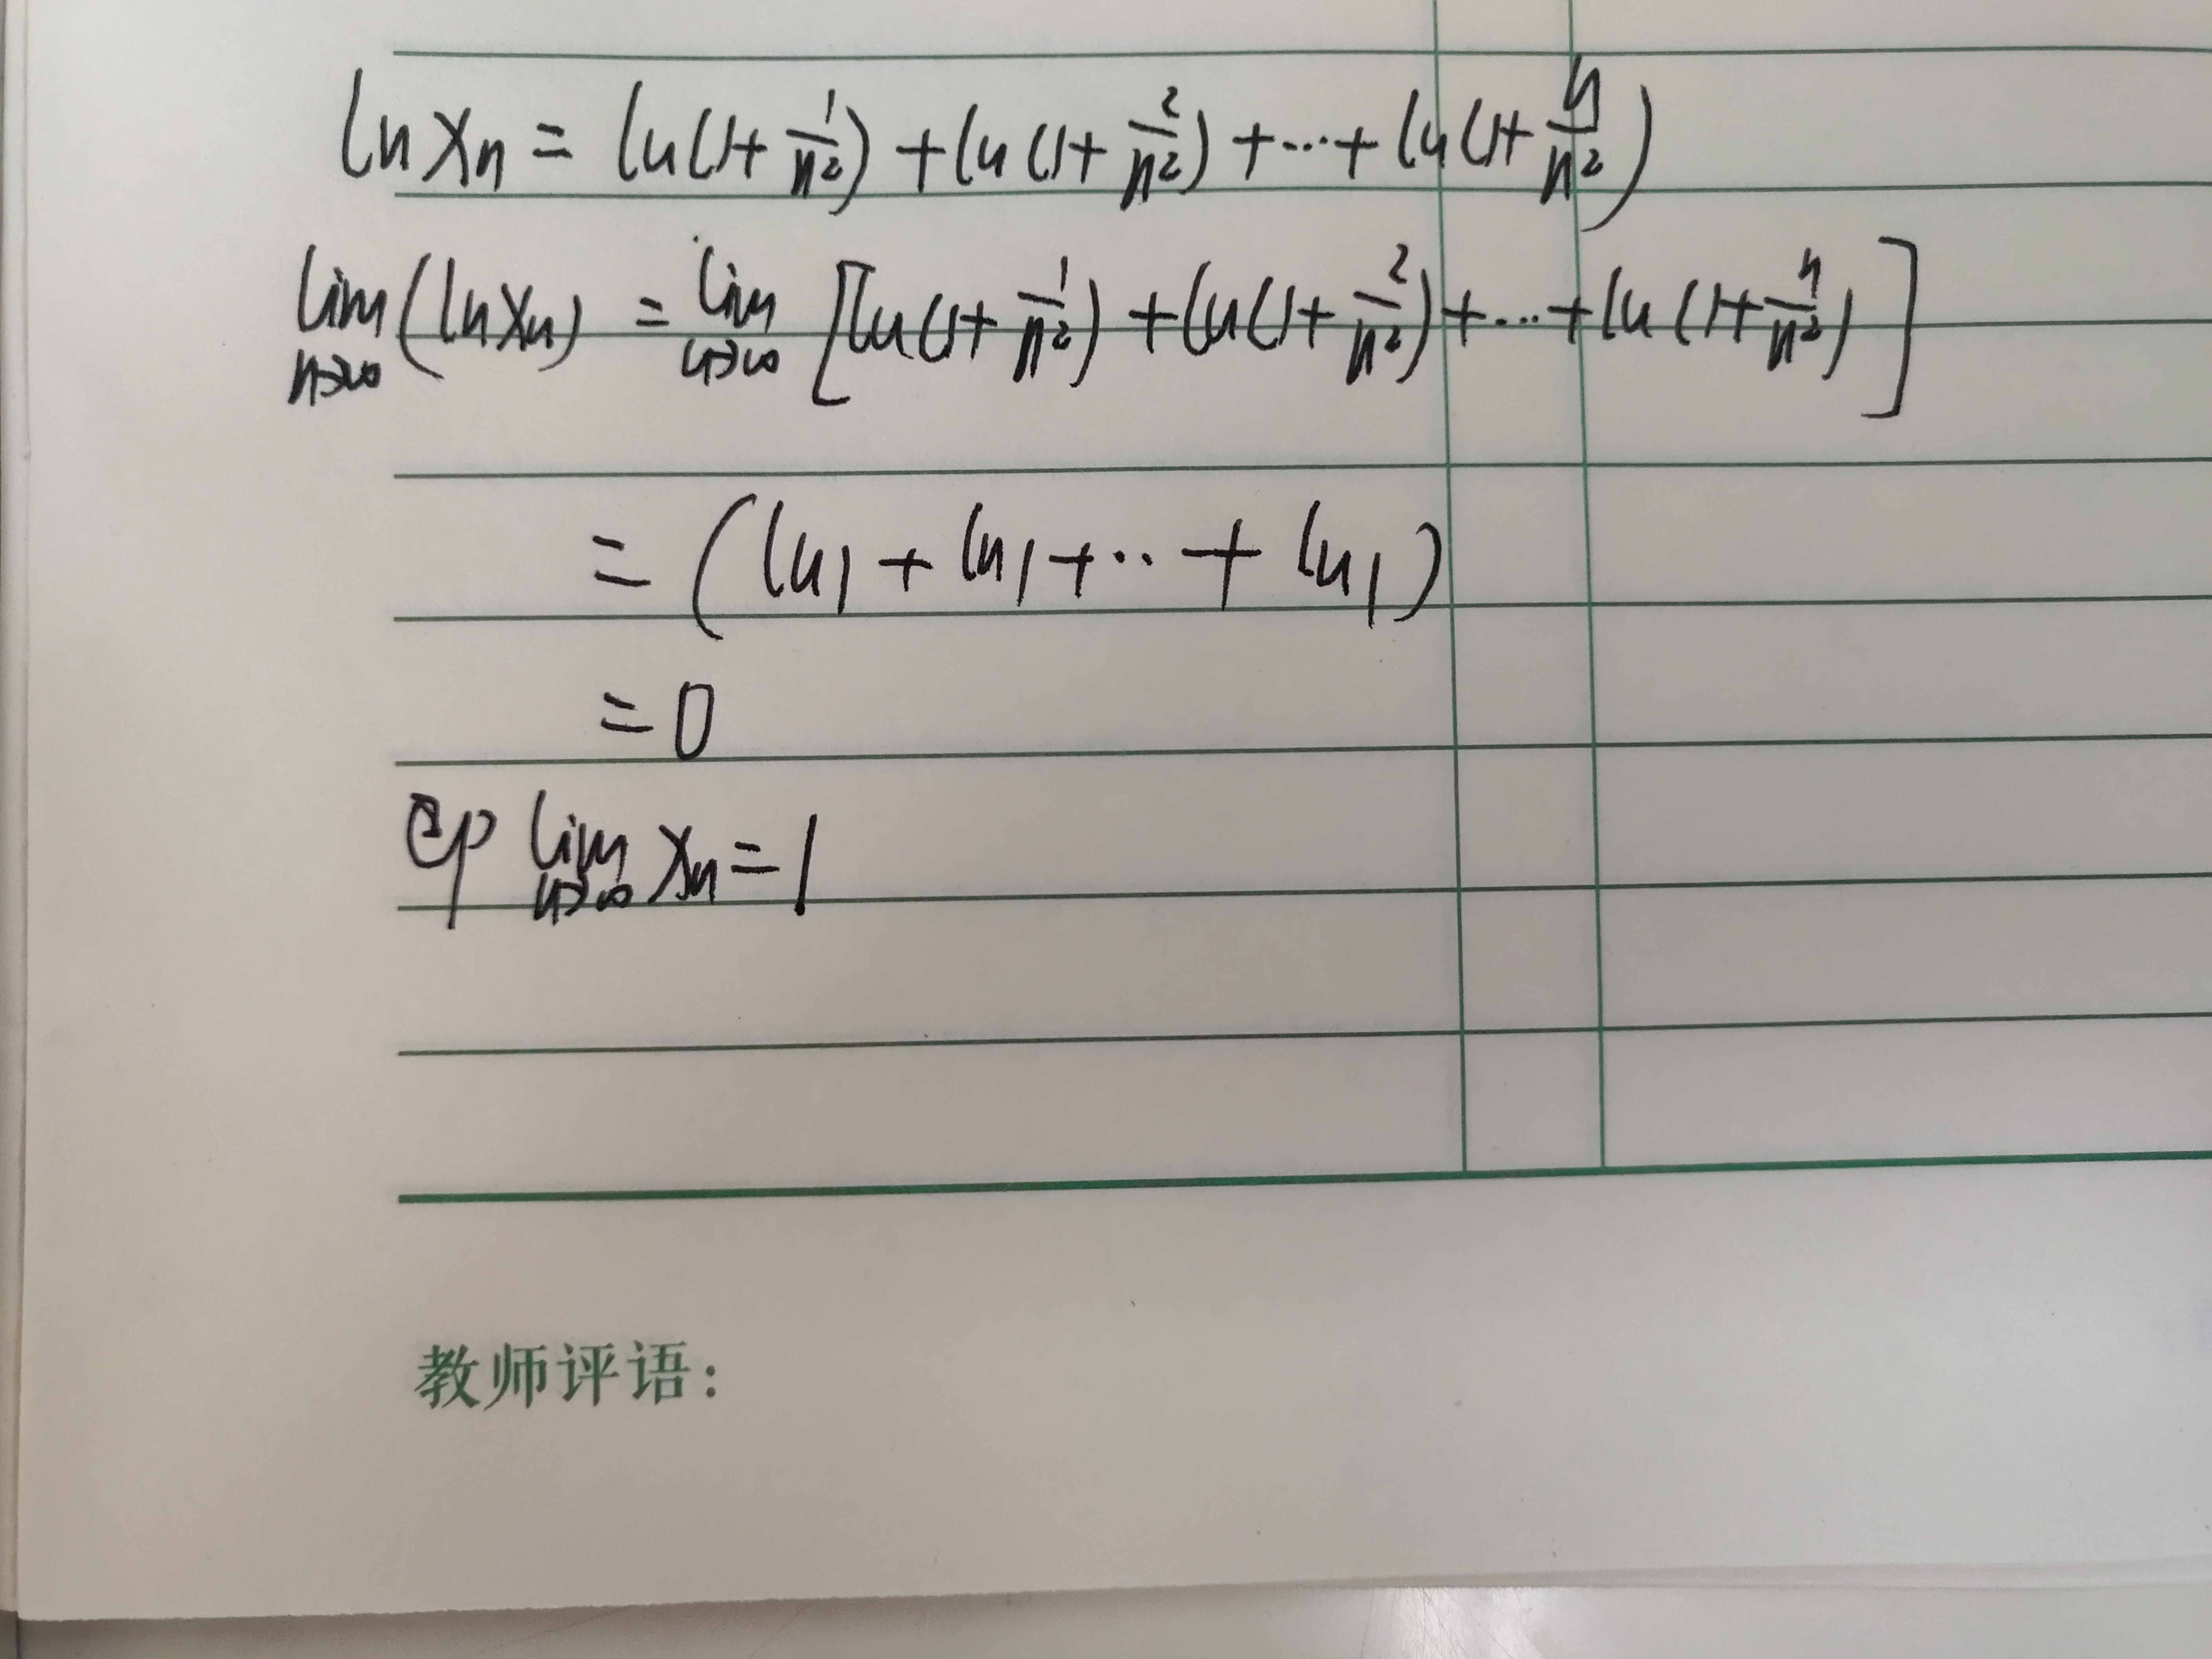 ln xn = ln(1+1/n²)+ln(1+2/n²)+…+ln(1+n/n²)
lim n→∞ (ln xn) = lim n→∞ [ln(1+1/n²)+ln(1+2/n²)+…+ln(1+n/n²)]
= (ln1+ln1+…+ln1)
=0
即 lim n→∞ xn=1
教师评语: